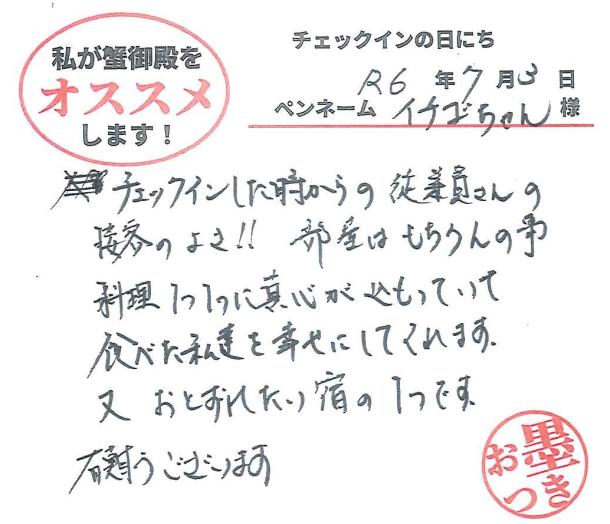 私が蟹御殿を
オススメ
します!
チェックインの日にち
R6 年 7 月 3 日
ペンネーム イチゴちゃん 様
チェックインした時からの 従業員さんの
接客のよさ!! 部屋はもちろんの事
料理1つ1つに真心が込もっていて
食べた私達を幸せにしてくれます。
又 おとずれしたい宿の1つです。
有難うございます
お墨つき